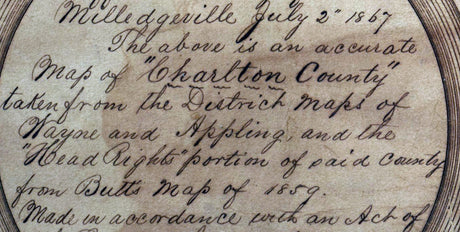 Milledgeville July 2d 1867
The above is an accurate
Map of "Charlton County"
taken from the District Maps of
Wayne and Appling, and the
"Head Rights" portion of said County
from Butts Map of 1859.
Made in accordance with an Act of